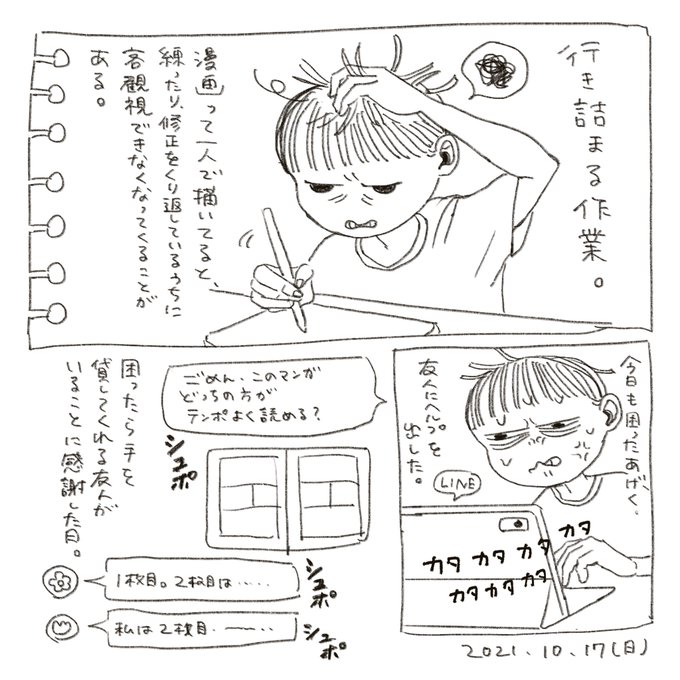 行き詰まる作業。
漫画って一人で描いてると、
練ったり、修正をくり返しているうちに
客観視できなくなってくることが
ある。
今日も困ったあげく、
友人にヘルプを
出した。
LINE
カタ カタ カタ カタ
カタ カタ カタ
ごめん、このマンガ
どっちの方が
テンポよく読める？
シュポ
1枚目。2枚目は……
シュポ
私は2枚目.
シュポ
困ったら手を
貸してくれる友人が
いることに感謝した日。
2021.10.17(日)